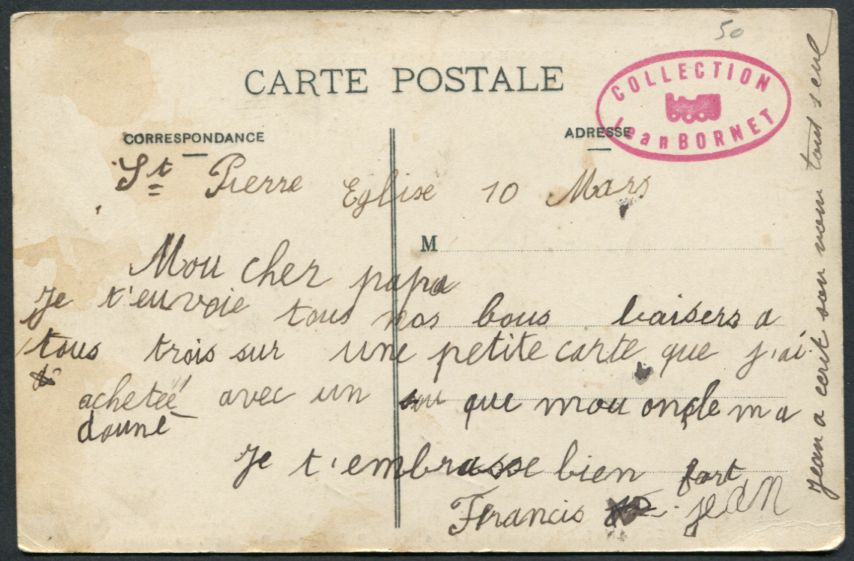 50
CARTE POSTALE
COLLECTION
Jean BORNET
CORRESPONDANCE
ADRESSE
St Pierre Eglise 10 Mars
M
Mon cher papa
Je t'envoie tous nos bons baisers a
tous trois sur une petite carte que j'ai
achetée avec un sou que mon oncle m a
donné
Je t'embrasse bien fort
Francis jean
Jean a ecrit son nom tout seul